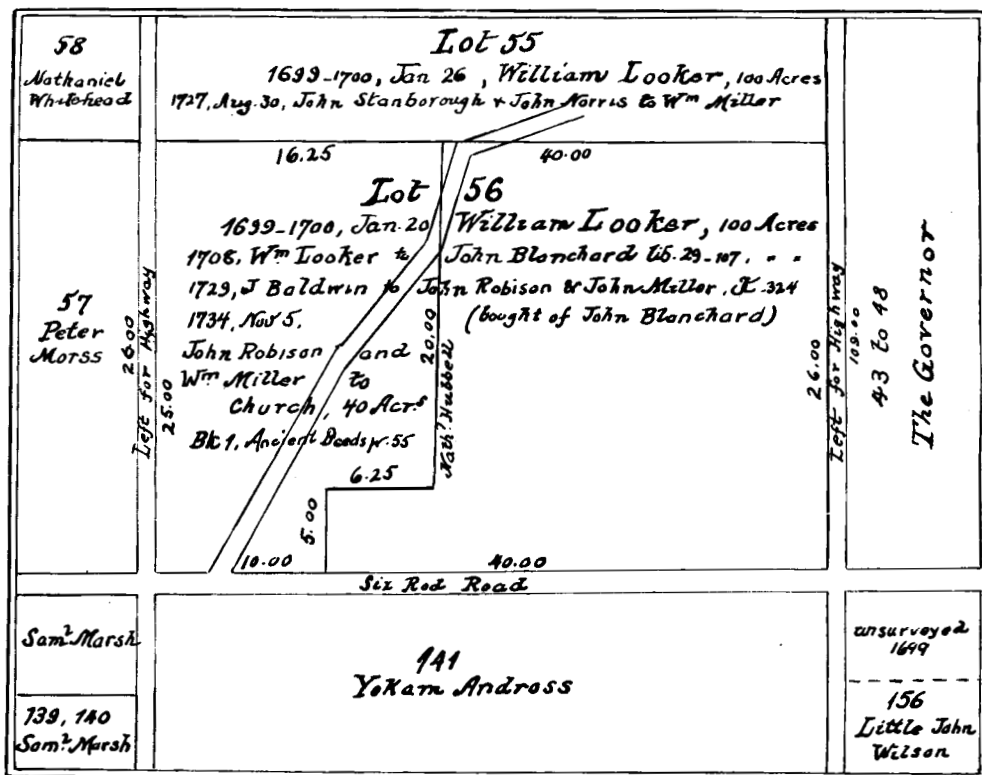 58
Nathaniel
Whitehead
Lot 55
1699-1700, Jan 26, William Looker, 100 Acres
1727, Aug. 30, John Stanborough & John Norris to Wm Miller
16.25
40.00
Lot 56
1699-1700, Jan. 20 William Looker, 100 Acres
1708, Wm Looker to John Blanchard lib. 29-107, " "
1729, J Baldwin to John Robison & John Miller, K. 324
1734, Nov 5, (bought of John Blanchard)
John Robison and
Wm Miller to
Church, 40 Acrs
Bk 1, Ancient Deeds p. 55
57
Peter
Morss
26.00
Left for Highway
25.00
20.00
Nathl Hubbell
6.25
5.00
10.00
40.00
26.00
Left for Highway
109.00
43 to 48
The Governor
Six Rod Road
Saml Marsh
139, 140
Saml Marsh
141
Yokam Andross
unsurveyed
1699
156
Little John
Wilson